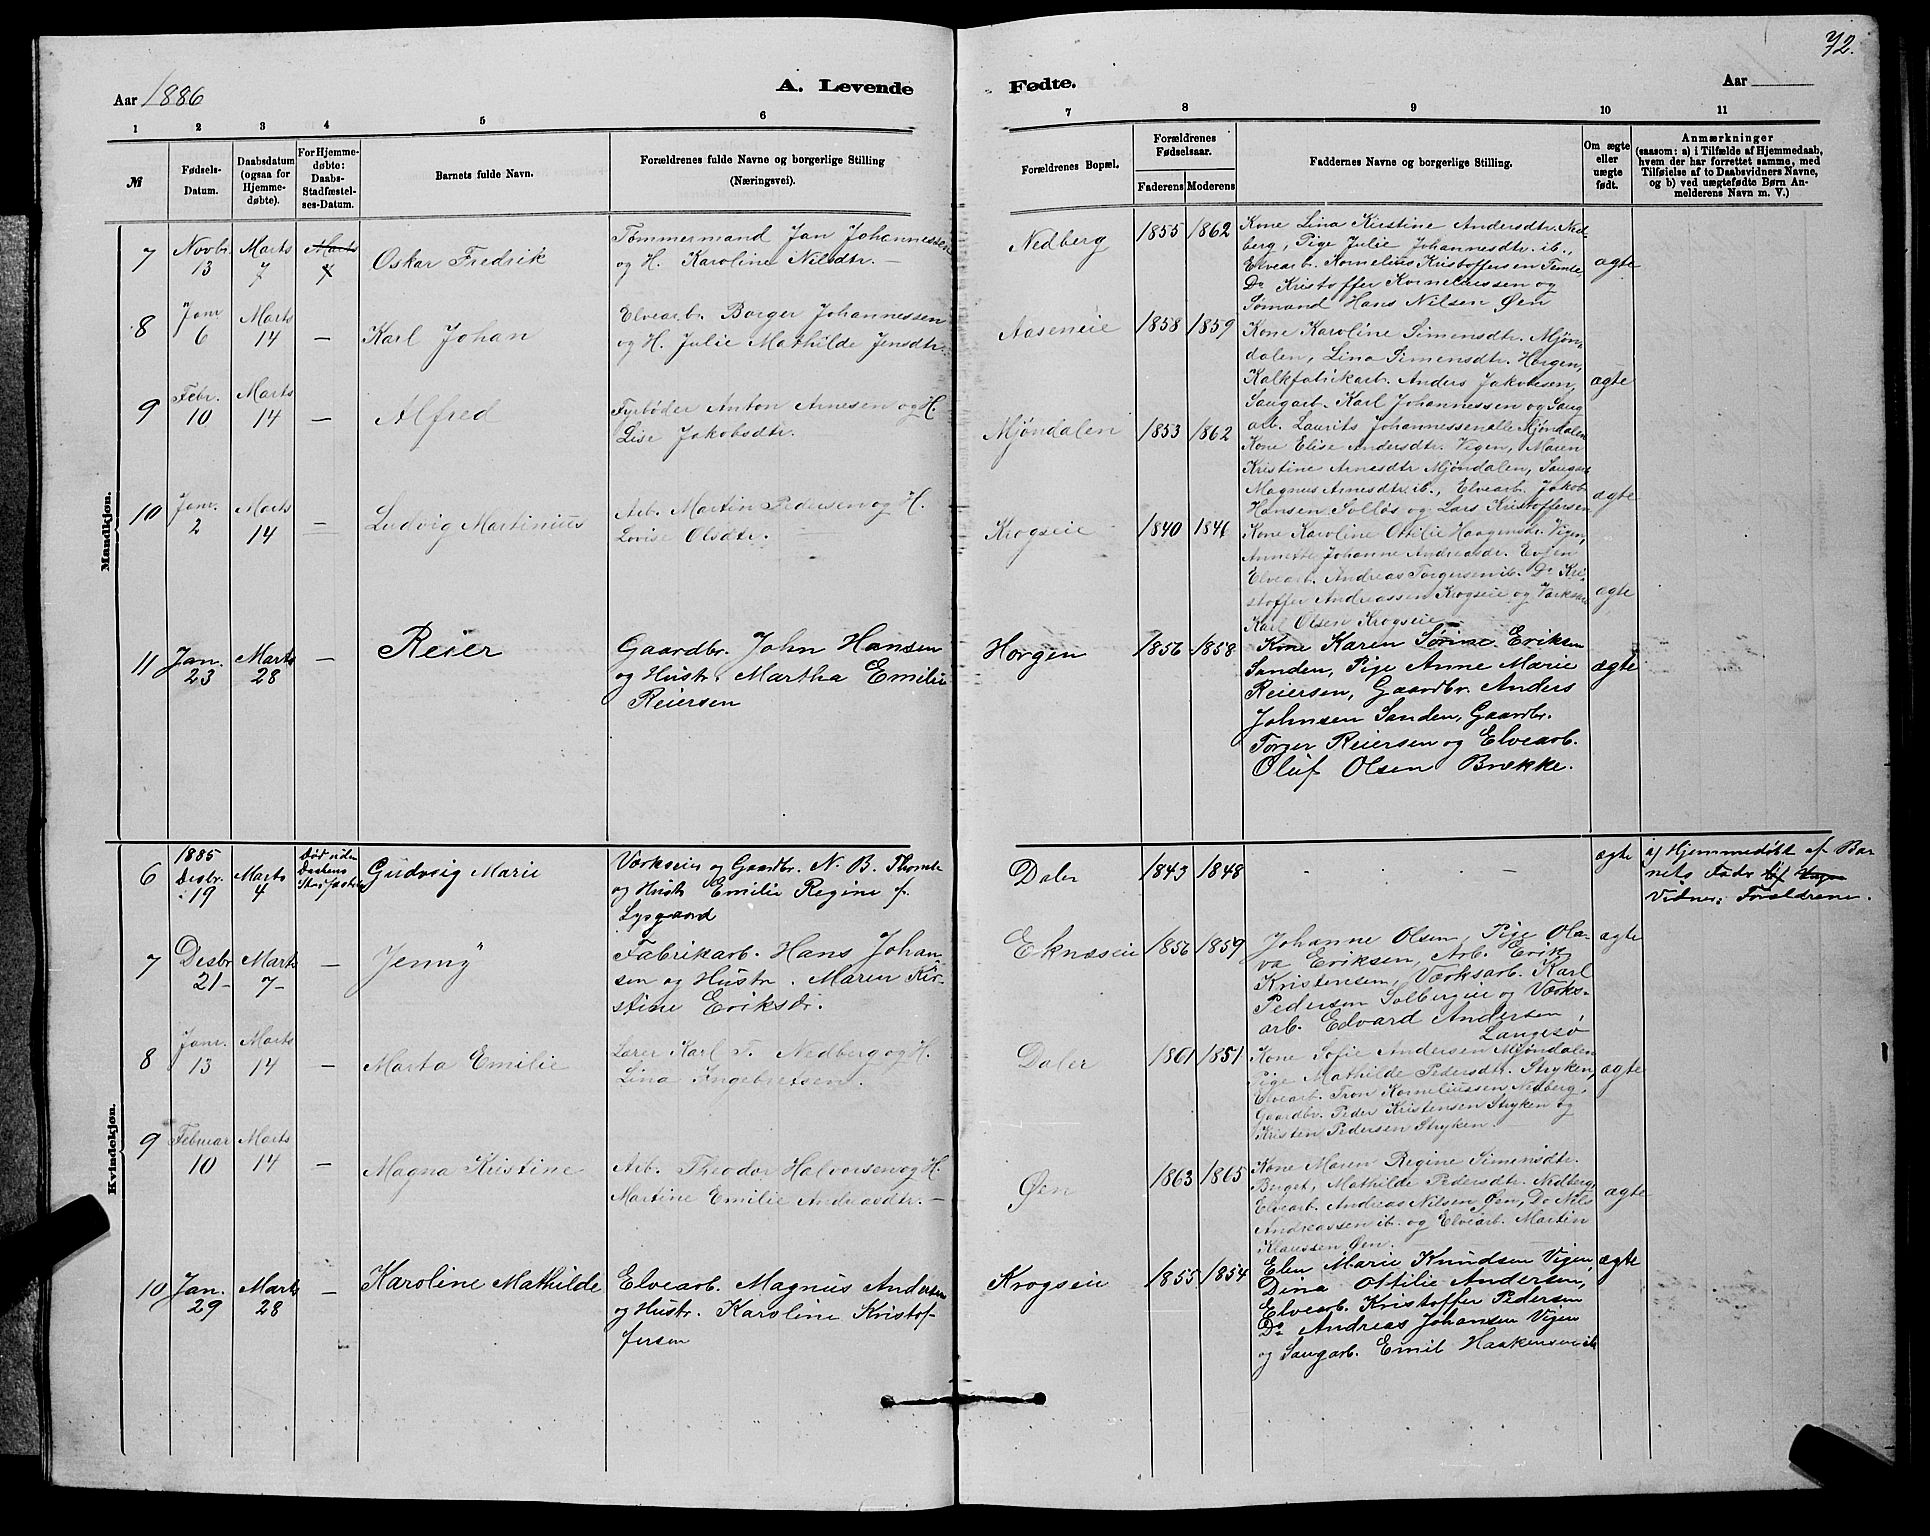 72.
Aar 1886
A. Levende
Fødte.
Aar
1 2 3 4 5 6
7 8 9 10 11
№
Fødsels-
Datum.
Daabsdatum
(ogsaa for
Hjemme-
døbte).
For Hjemme-
døbte:
Daabs-
Stadfæstel-
ses-Datum.
Barnets fulde Navn.
Forældrenes fulde Navne og borgerlige Stilling
(Næringsvei).
Forældrenes Bopæl.
Forældrenes
Fødselsaar.
Faderens Moderens
Faddernes Navne og borgerlige Stilling.
Om ægte
eller
uægte
født.
Anmærkninger
(saasom: a) i Tilfælde af Hjemmedaab,
hvem der har forrettet samme, med
Tilføielse af to Daabsvidners Navne,
og b) ved uægtefødte Børn An-
melderens Navn m. V.)
Mandkjøn.
7
Novbr.
13
Marts
7
Marts
7
Oskar Fredrik
Tømmermand Jan Johannessen
og H. Karoline Nilsdtr. —
Nedberg
1855 1862
Kone Lina Kirstine Andersdtr. Ned-
berg, Pige Julie Johannesdtr. ib.,
Elvearb. Kornelius Kristoffersen Temte
Do Kristoffer Korneliussen og
Sømand Hans Nilsen Øen
ægte
8
Janr
6
Marts
14
—
Karl Johan
Elvearb. Borger Johannessen
og H. Julie Mathilde Jensdtr.
Aaseneie
1858 1859
Kone Karoline Simensdtr. Mjøn-
dalen, Lina Simensdtr. Horgen,
Kalkfabrikarb. Anders Jakobsen,
Saugarb. Karl Johannessen og Saug-
arb. Laurits Johannessen alle Mjøndalen
ægte
9
Febr.
10
Marts
14
—
Alfred
Fyrbøder Anton Arnesen og H.
Lise Jakobsdtr.
Mjøndalen
1853 1862
Kone Elise Andersdtr. Vigen, Maren
Kristine Arnesdtr Mjøndalen, Saugarb
Magnus Arnesdtr. ib., Elvearb. Jakob
Hansen Solløs og Lars Kristoffersen
ægte
10
Janr.
2
Marts
14
—
Ludvig Martinius
Arb. Martin Pedersen og H.
Lovise Olsdtr.
Krogseie
1840 1846
Kone Karoline Ottilie Haagensdr. Vigen,
Johanne Andreasdr. Evjen
Elvearb. Andreas Torgersen ib. Do Kri-
stoffer Andreassen Krogseie og Værksarb
Karl Olsen Krogseie
ægte
11
Jan.
23
Marts
28
—
Reier
Gaardbr. John Hansen
og Hustr. Martha Emilie
Reiersen
Horgen
1856 1858
Kone Karen Sørine Eriksen
Sanden, Pige Anne Marie
Reiersen, Gaardbr. Anders
Johnsen Sanden, Gaardbr.
Torger Reiersen og Elvearb.
Oluf Olsen Brække.
ægte
Kvindekjøn.
6
1885
Desbr.
19
Marts
4
Død uden
Daabens
Stadfæstelse
Gudvig Marie
Værkseier og Gaardbr. N. B. Thomle
og Hustr Emilie Regine f.
Lysgaard
Daler
1843 1848
ægte
a) Hjemmedøbt af Bar
nets Fader
Vidner: Forældrene.
7
Desbr
21
Marts
7
—
Jenny
Fabrikarb. Hans Johan-
sen og Hustr. Maren Kir-
stine Eriksdr.
Eknæseie
1856 1859
Johanne Olsen, Pige Ola-
va Eriksen, Arb. Erik
Kristensen, Værksarb. Karl
Pedersen Solbergeie og Værks-
arb. Edvard Andersen,
Langesø
ægte
8
Janr.
13
Marts
14
—
Marta Emilie
Lærer Karl T. Nedberg og H.
Lina Ingebretsen.
Daler
1861 1851
Kone Sofie Andersen Mjøndalen
Pige Mathilde Pedersdtr. Stryken,
Elvearb. Tron Korneliussen Nedberg,
Gaardbr. Peder Kristensen Stryken og
Kristen Pedersen Stryken.
ægte
9
Februar
10
Marts
14
—
Magna Kristine
Arb. Theodor Halvorsen og H.
Martine Emilie Andreasdtr. —
Øen
1863 1865
Kone Maren Regine Simensdtr.
Berget, Mathilde Pedersdtr. Nedberg,
Elvearb. Andreas Nilsen Øen, Do Nils
Andreassen ib. og Elvearb. Martin
Klaussen Øen.
ægte
10
Jan.
29
Marts
28
—
Karoline Mathilde
Elvearb. Magnus Andersen
og Hustr. Karoline Kristof-
fersen
Krogseie
1855 1854
Elen Marie Knudsen Vigen
Dina Ottilie Andersen,
Elvearb. Kristoffer Pedersen
Do Andreas Johansen Vigen
og Saugarb. Emil Haakensen ib
ægte